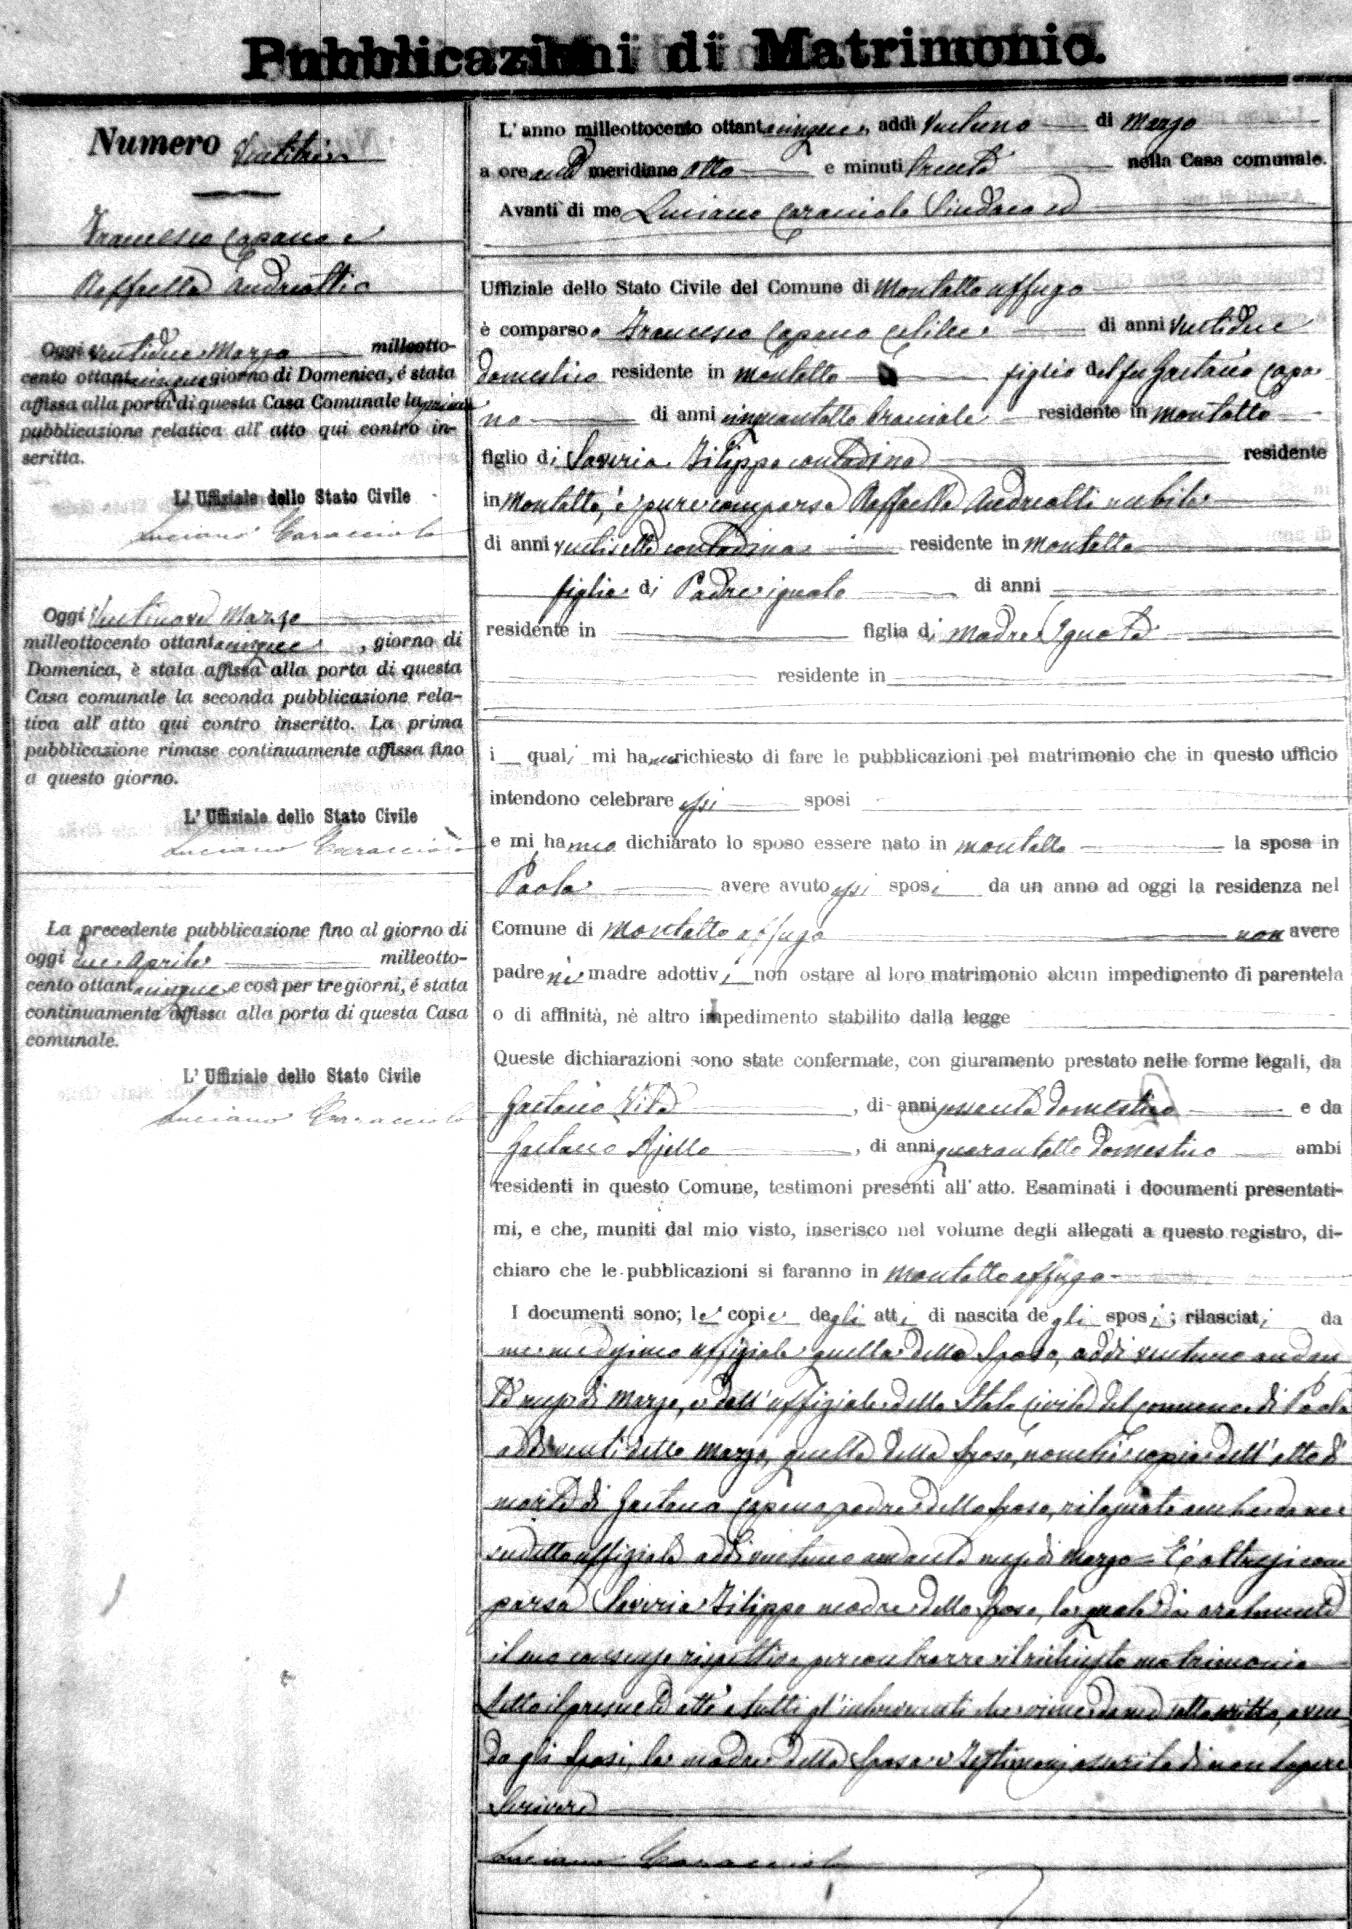 Pubblicazioni di Matrimonio.
Numero Ventitrè
Francesco Capano e
Raffaella Andreotti
Oggi ventidue Marzo milleotto-
cento ottantacinque giorno di Domenica, é stata
affissa alla porta di questa Casa Comunale la prima
pubblicazione relativa all' atto qui contro in-
scritta.
L' Uffiziale dello Stato Civile
Luciano Caracciolo
Oggi Ventinove Marzo
milleottocento ottantacinque, giorno di
Domenica, è stata affissa alla porta di questa
Casa comunale la seconda pubblicazione rela-
tiva all' atto qui contro inscritto. La prima
pubblicazione rimase continuamente affissa fino
a questo giorno.
L' Uffiziale dello Stato Civile
Luciano Caracciolo
La precedente pubblicazione fino al giorno di
oggi due Aprile milleotto-
cento ottantacinque e così per tre giorni, é stata
continuamente affissa alla porta di questa Casa
comunale.
L' Uffiziale dello Stato Civile
Luciano Caracciolo
L' anno milleottocento ottantacinque, addì Ventuno di Marzo
a ore anti meridiane otto e minuti trenta nella Casa comunale.
Avanti di me Luciano Caracciolo Sindaco ed
Uffiziale dello Stato Civile del Comune di Montalto Uffugo
è comparso Francesco Capano celibe di anni Ventidue
domestico residente in Montalto figlio del fu Gaetano Capa-
no di anni cinquantotto bracciale residente in Montalto
figlio di Saveria Filippo contadina residente
in Montalto, è pure comparsa Raffaella Andreotti nubile
di anni ventisette contadina residente in Montalto
figlia di Padre ignoto di anni
residente in figlia di madre Ignota
residente in
i quali mi hanno richiesto di fare le pubblicazioni pel matrimonio che in questo ufficio
intendono celebrare essi sposi
e mi hanno dichiarato lo sposo essere nato in Montalto la sposa in
Paola avere avuto essi sposi da un anno ad oggi la residenza nel
Comune di Montalto Uffugo non avere
padre nè madre adottivi non ostare al loro matrimonio alcun impedimento di parentela
o di affinità, nè altro impedimento stabilito dalla legge
Queste dichiarazioni sono state confermate, con giuramento prestato nelle forme legali, da
Gaetano Vita, di anni domestico e da
Gaetano Ajello, di anni quarantotto domestico ambi
residenti in questo Comune, testimoni presenti all' atto. Esaminati i documenti presentati-
mi, e che, muniti dal mio visto, inserisco nel volume degli allegati a questo registro, di-
chiaro che le pubblicazioni si faranno in Montalto Uffugo
I documenti sono; le copie degli atti di nascita degli sposi; rilasciati da
me medesimo uffiziale quella dello sposo, addì ventuno andan
te mese di Marzo, e dall' uffiziale dello Stato Civile del Comune di Paola
addì venti detto Marzo, quella della sposa, nonchè copia dell' atto di
morte di Gaetano Capano padre dello sposo, rilasciato anche da me
sudetto uffiziale addì ventuno andante mese di Marzo = È altresì com
parsa Saveria Filippo madre dello sposo, la quale dà oralmente
il suo consenso rispettivo per contrarre il richiesto matrimonio
Letto il presente atto a tutti gl' intervenuti che viene da me sottoscritto, aven-
do gli sposi, la madre dello sposo e testimoni asserito di non sapere
scrivere
Luciano Caracciolo